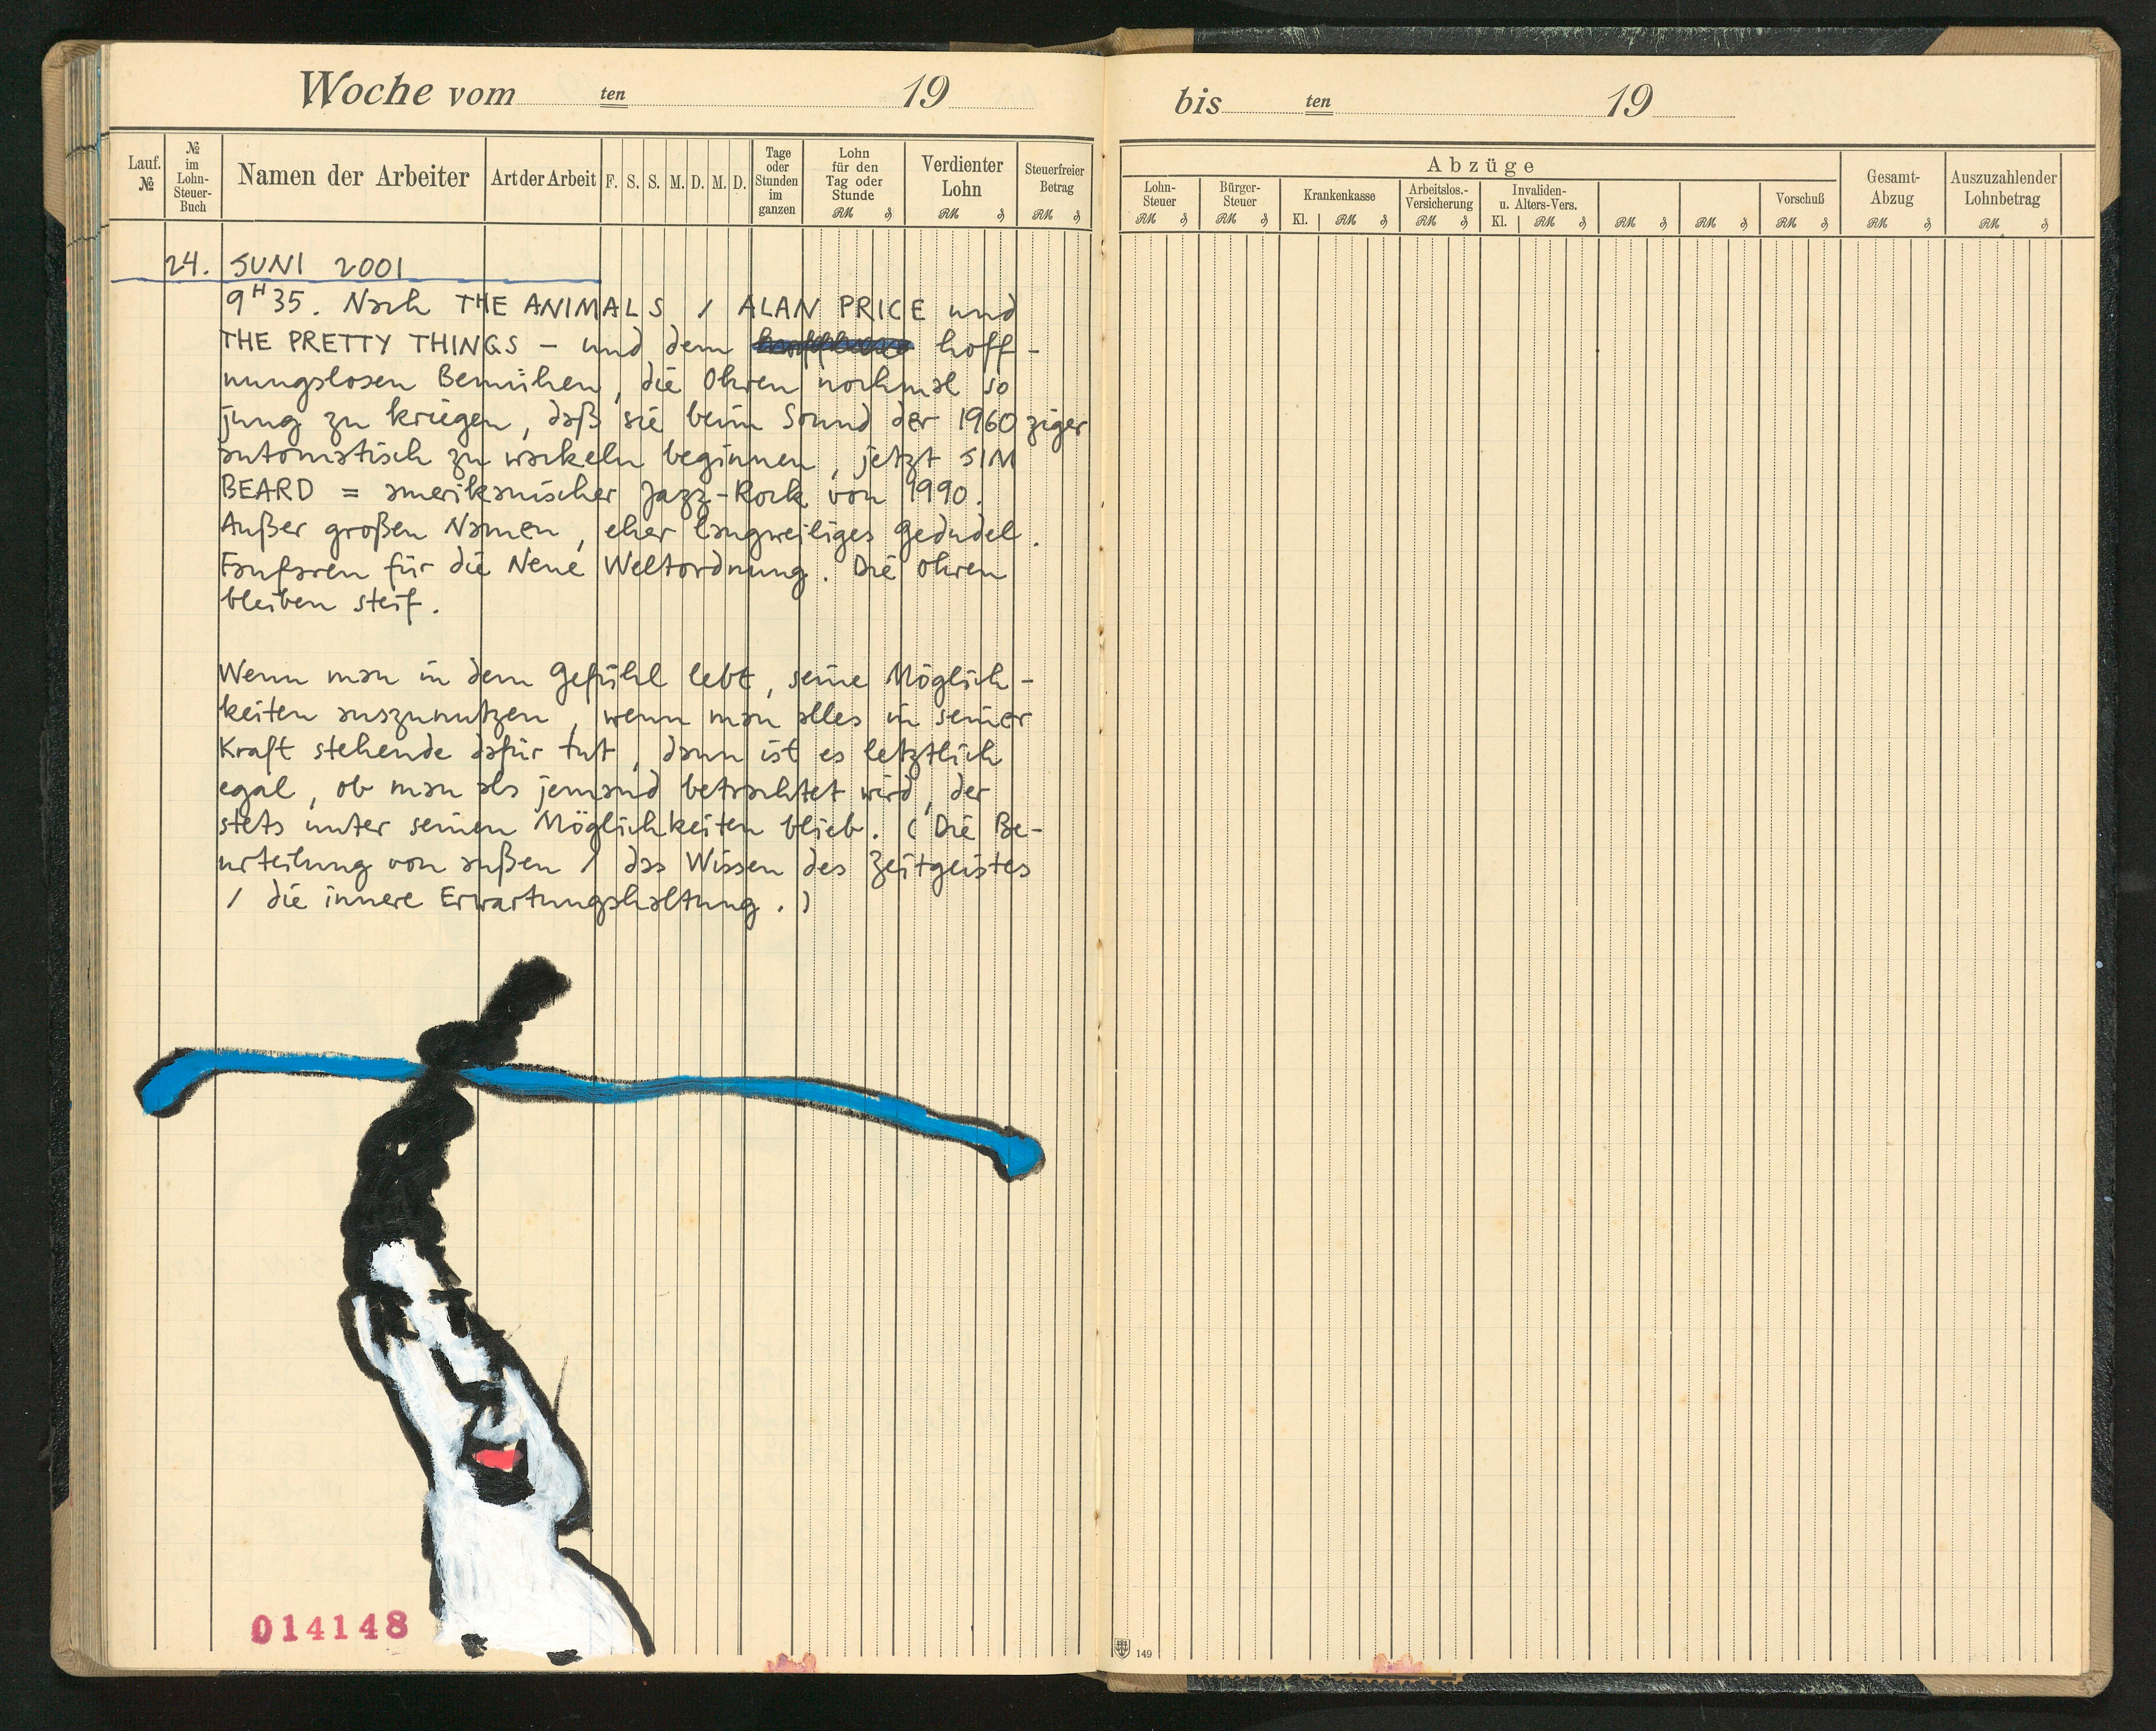 Woche vom ten 19
bis ten 19
Lauf. № | № im Lohn-Steuer-Buch | Namen der Arbeiter | Art der Arbeit | F. | S. | S. | M. | D. | M. | D. | Tage oder Stunden im ganzen | Lohn für den Tag oder Stunde RM ₰ | Verdienter Lohn RM ₰ | Steuerfreier Betrag RM ₰
Abzüge
Lohn-Steuer RM ₰ | Bürger-Steuer RM ₰ | Krankenkasse Kl. RM ₰ | Arbeitslos.-Versicherung RM ₰ | Invaliden- u. Alters-Vers. Kl. RM ₰ | RM ₰ | RM ₰ | Vorschuß RM ₰ | Gesamt-Abzug RM ₰ | Auszuzahlender Lohnbetrag RM ₰
24. JUNI 2001
9H35. Nach THE ANIMALS / ALAN PRICE und
THE PRETTY THINGS – und dem hoff-
nungslosen Bemühen, die Ohren nochmal so
jung zu kriegen, daß sie beim Sound der 1960ziger
automatisch zu wackeln beginnen, jetzt JIM
BEARD = amerikanischer Jazz-Rock von 1990.
Außer großen Namen, eher langweiliges Gedudel.
Fanfaren für die Neue Weltordnung. Die Ohren
bleiben steif.
Wenn man in dem Gefühl lebt, seine Möglich-
keiten auszunutzen, wenn man alles in seiner
Kraft stehende dafür tut, dann ist es letztlich
egal, ob man als jemand betrachtet wird, der
stets unter seinen Möglichkeiten blieb. (Die Be-
urteilung von außen / das Wissen des Zeitgeistes
/ die innere Erwartungshaltung.)
014148
149